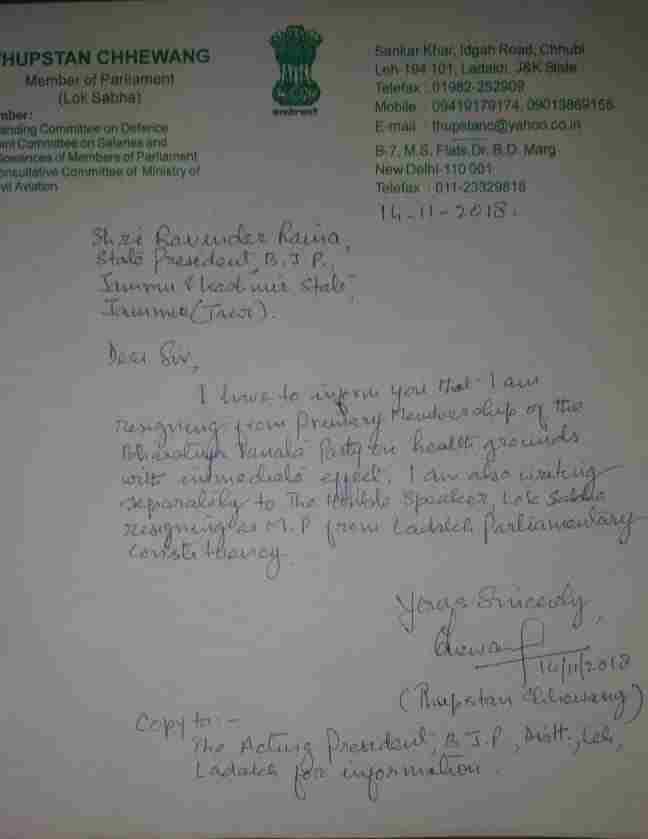 THUPSTAN CHHEWANG
Member of Parliament
(Lok Sabha)
mber:
anding Committee on Defence
int Committee on Salaries and
lowances of Members of Parliament
onsultative Committee of Ministry of
ivil Aviation
Sankar Khar, Idgah Road, Chhubi
Leh-194 101, Ladakh, J&K State
Telefax : 01982-252909
Mobile : 09419179174, 09013869166
E-mail : thupstanc@yahoo.co.in
B-7, M.S. Flats, Dr. B.D. Marg
New Delhi-110 001
Telefax : 011-23329818
14-11-2018.
Shri Ravinder Raina,
State President, B.J.P.,
Jammu & Kashmir State,
Jammu (Tawi).
Dear Sir,
I have to inform you that I am
resigning from Primary Membership of the
Bharatiya Janata Party on health grounds
with immediate effect. I am also writing
separately to The Hon'ble Speaker, Lok Sabha
resigning as M.P from Ladakh Parliamentary
Constituency.
Yours Sincerely,
14/11/2018
(Thupstan Chhewang)
Copy to:-
The Acting President, B.J.P., Distt., Leh,
Ladakh for information.